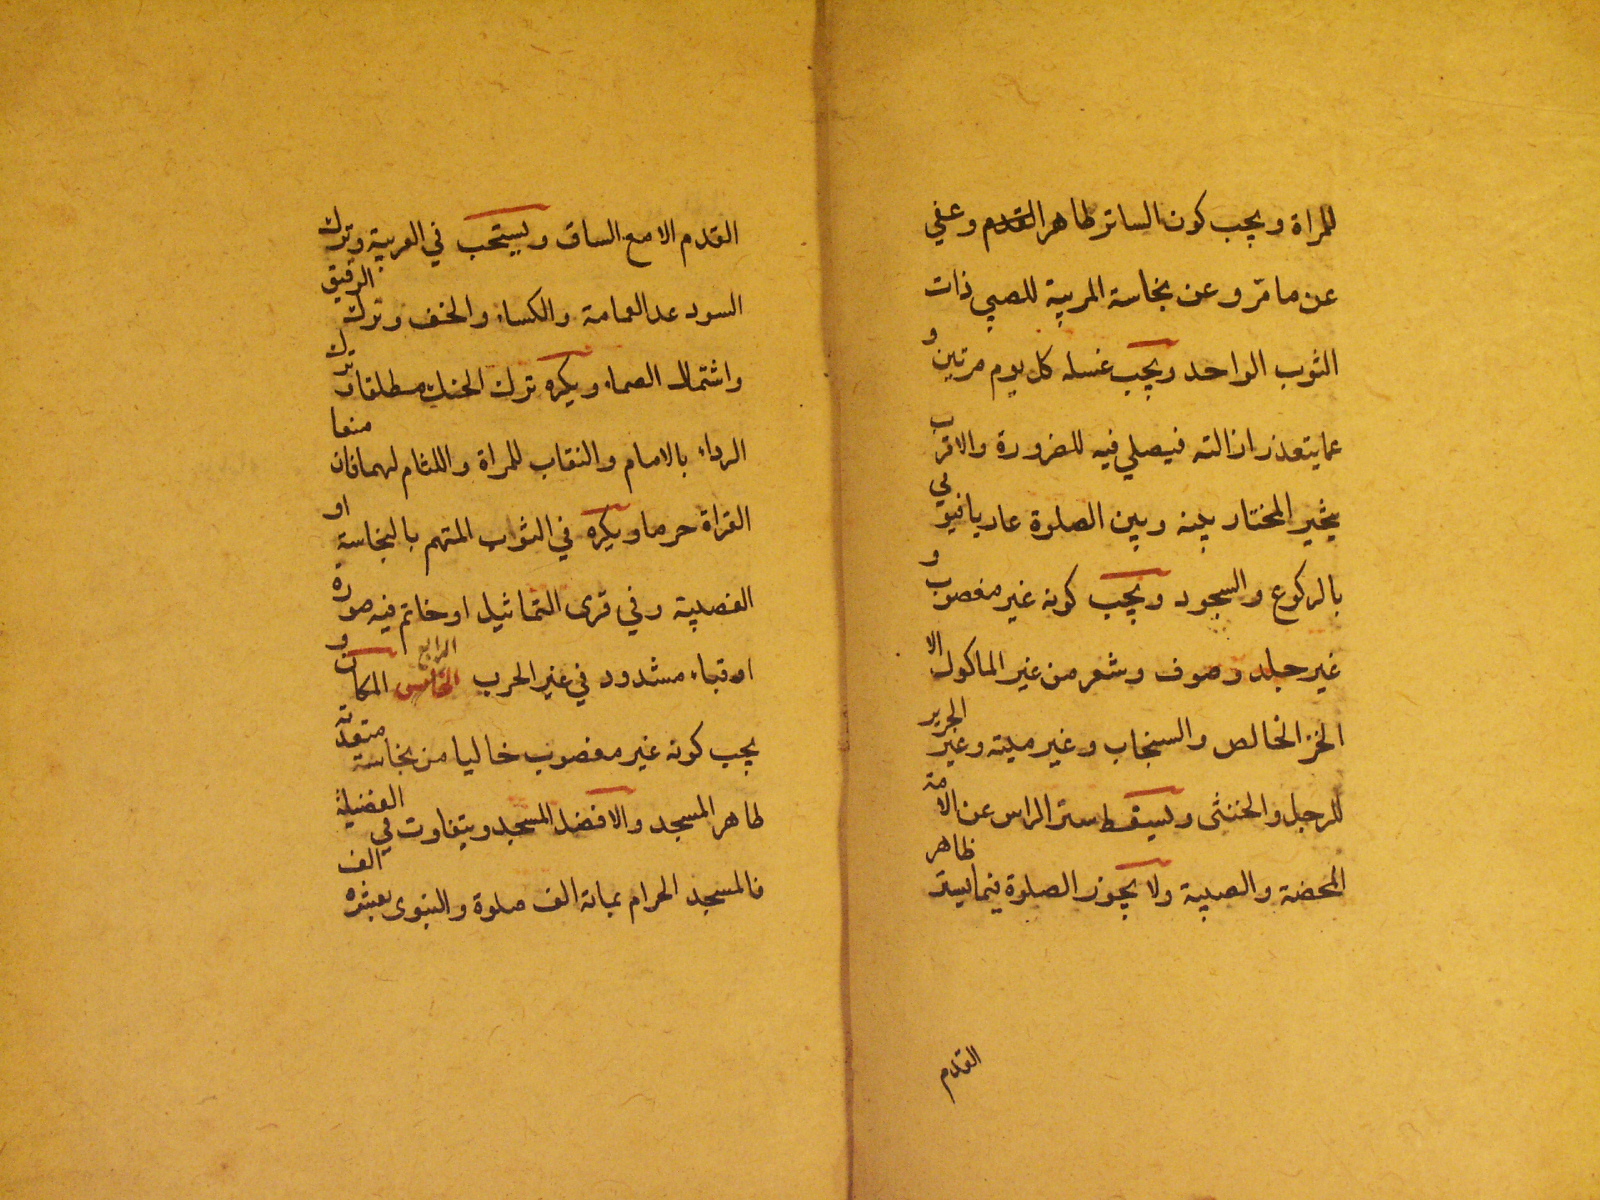 للمراة ويجب كون الساتر طاهرا القدم وعفي
عن ما مرّ وعن نجاسة المربية للصبي ذات
الثوب الواحد ويجب غسله كل يوم مرتين و
عما يتعذر ازالته فيصلي فيه للضرورة والاقرب
يتخير المختار بينه وبين الصلوة عاريا فيومي
بالركوع والسجود ويجب كونه غير مغصوب و
غير جلد وصوف وشعر من غير الماكول الا
الخز الخالص والسنجاب وغير ميتة وغير الحرير
للرجل والخنثى ويسقط ستر الراس عن الامة
المحضة والصبية ولا يجوز الصلوة فيما يستر ظاهر
القدم
القدم الا مع الساق ويستحب في العربية وترك
السود عدا العمامة والكساء والخف وترك الرقيق
واشتمال الصماء ويكره ترك الحنك مطلقا وترك
الرداء بالامام والنقاب للمراة واللثام لهما فان منعا
القراة حرما ويكره في الثواب المتهم بالنجاسة او
الغصبية وفي ثوب التماثيل او خاتم فيه صورة
او قباء مشدود في غير الحرب الرابع المكان و
يجب كونه غير مغصوب خاليا من نجاسة متعدية
طاهر المسجد والافضل المسجد ويتفاوت في الفضيلة
فالمسجد الحرام بمائة الف صلوة والنبوى بعشرة الف